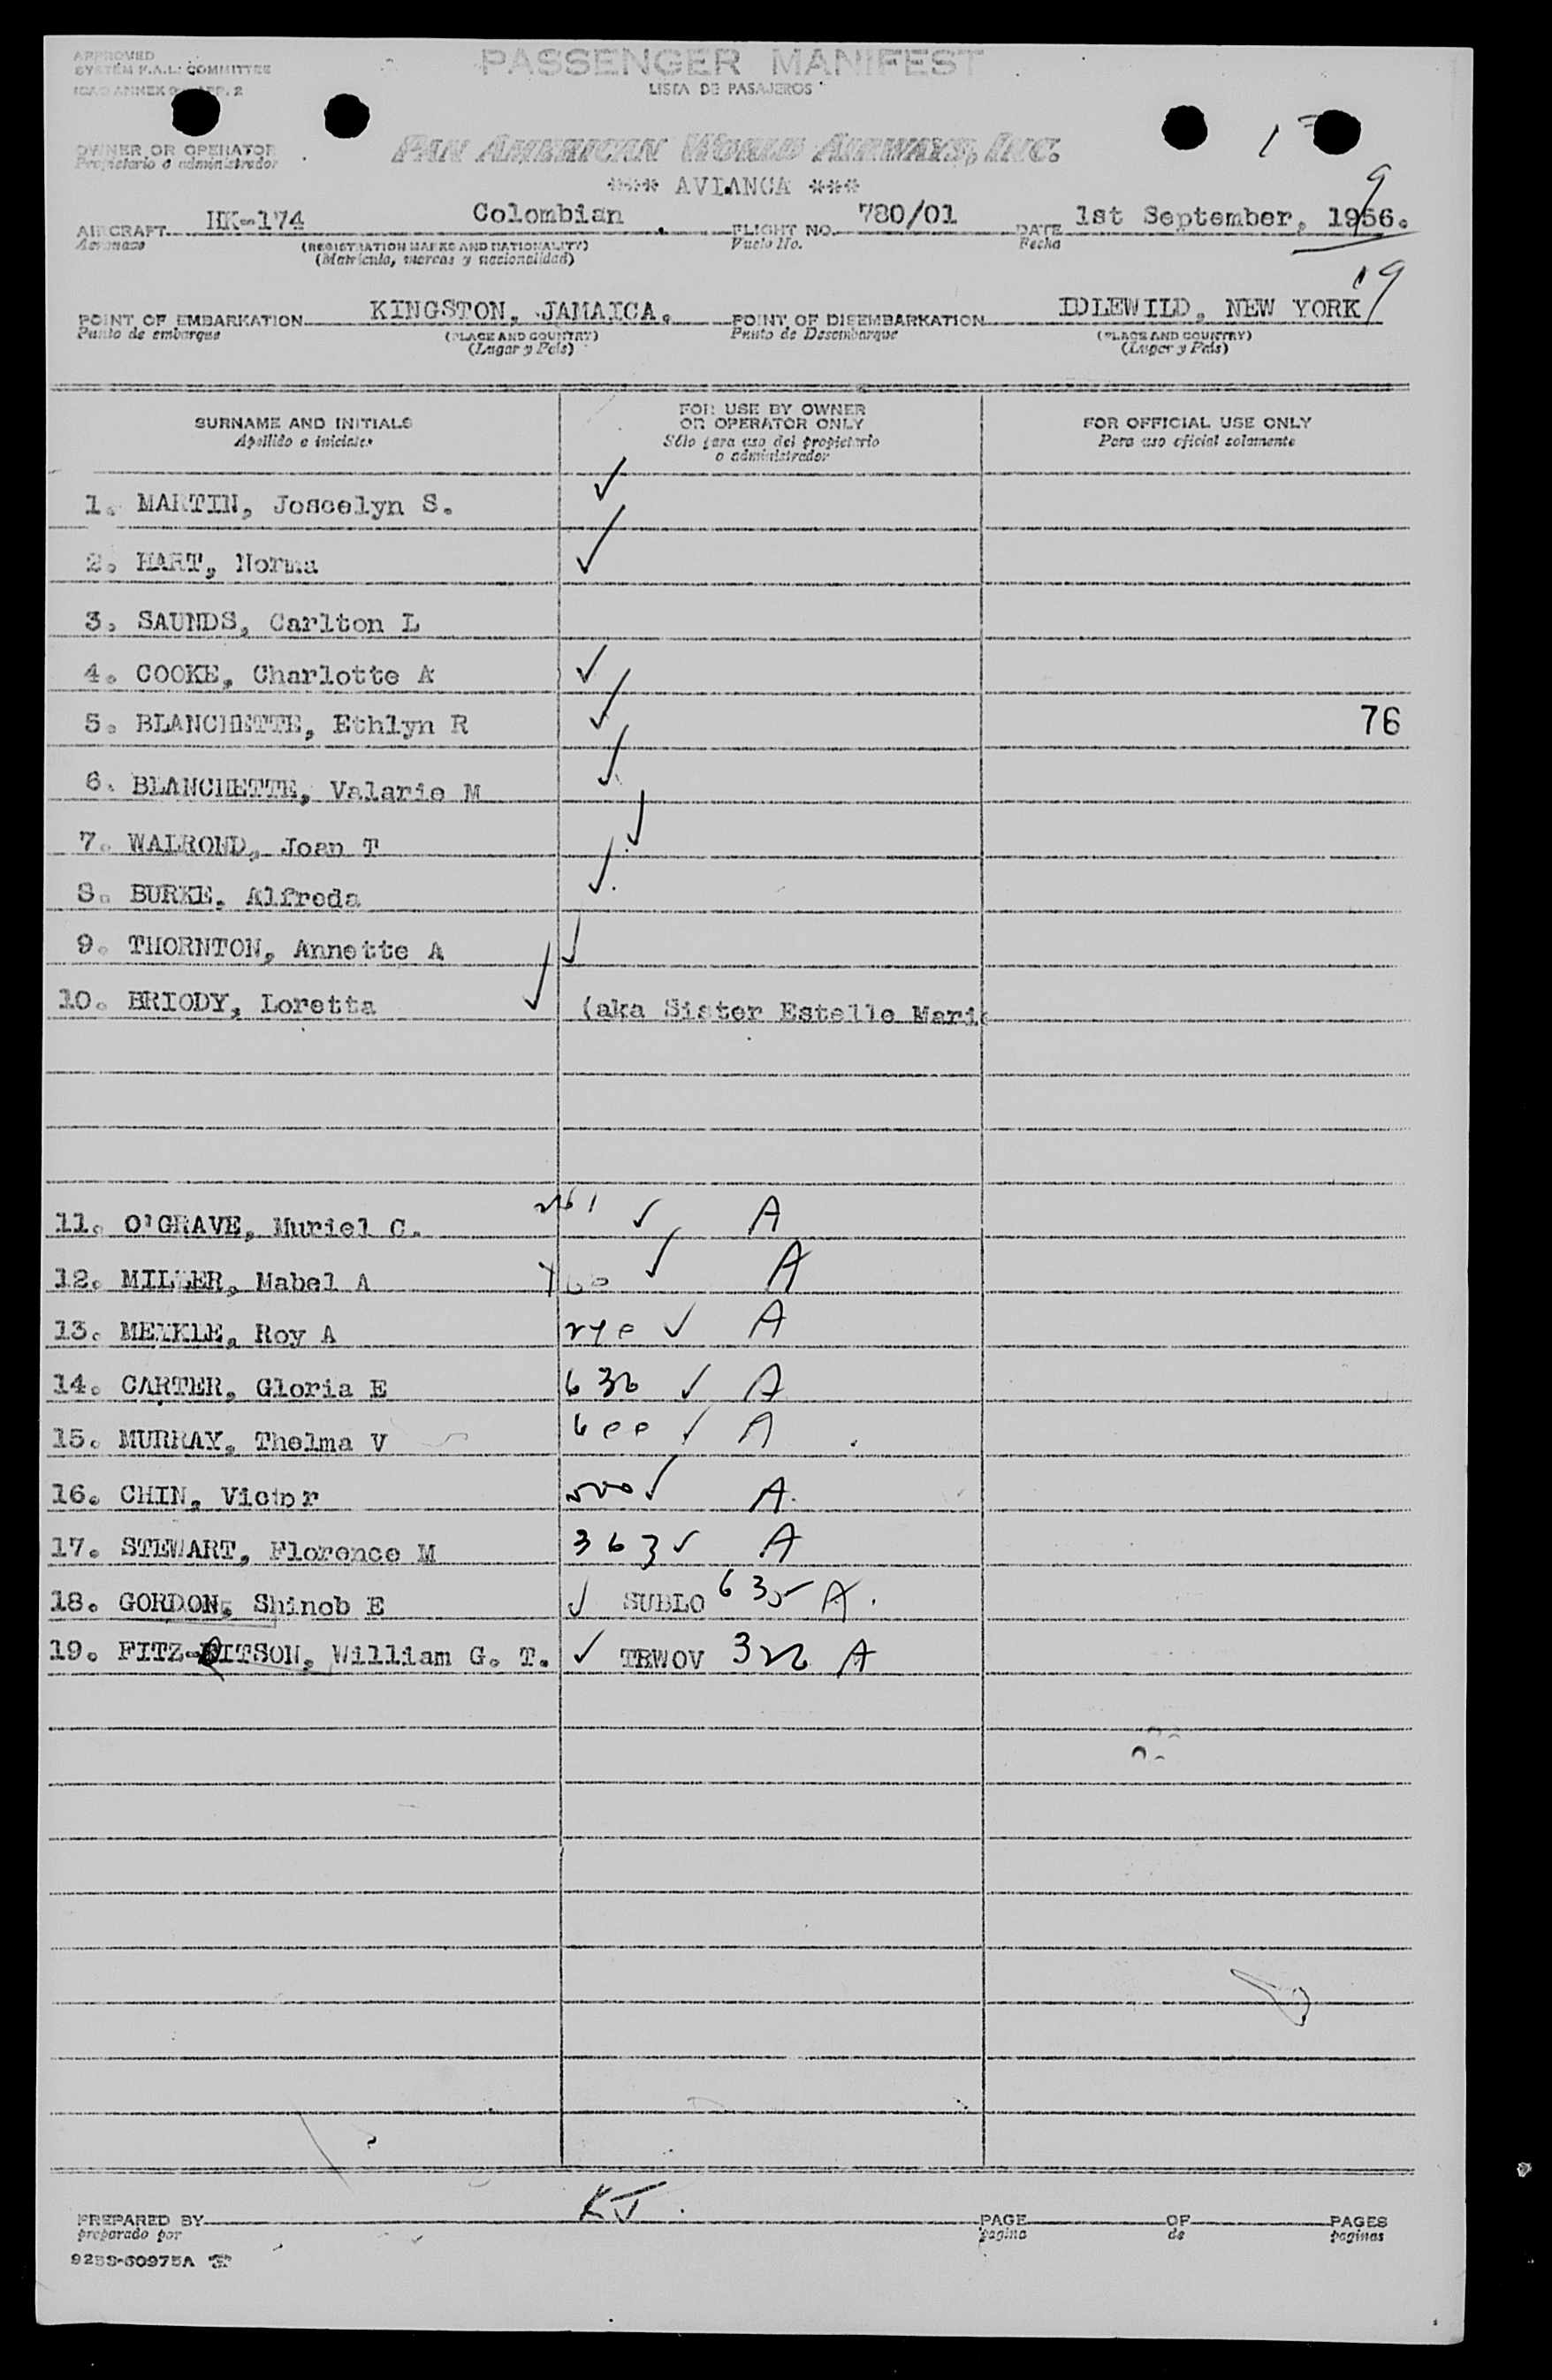 APPROVED
SYSTEM F.A.L. COMMITTEE
ICAO ANNEX 9 APP. 2
PASSENGER MANIFEST
LISTA DE PASAJEROS
OWNER OR OPERATOR
Propietario o administrador
PAN AMERICAN WORLD AIRWAYS, INC.
*** AVIANCA ***
AIRCRAFT HK-174 Colombian. FLIGHT NO. 780/01 DATE 1st September, 1956.
Aeronave (REGISTRATION MARKS AND NATIONALITY) Vuelo No. Fecha
(Matricula, marcas y nacionalidad)
19
POINT OF EMBARKATION KINGSTON, JAMAICA. POINT OF DISEMBARKATION IDLEWILD, NEW YORK
Punto de embarque (PLACE AND COUNTRY) Punto de Desembarque (PLACE AND COUNTRY)
(Lugar y País) (Lugar y País)
SURNAME AND INITIALS
Apellido e iniciales
FOR USE BY OWNER
OR OPERATOR ONLY
Sólo para uso del propietario
o administrador
FOR OFFICIAL USE ONLY
Para uso oficial solamente
1. MARTIN, Joscelyn S. ✓
2. HART, Norma ✓
3. SAUNDS, Carlton L
4. COOKE, Charlotte A ✓
5. BLANCHETTE, Ethlyn R ✓ 76
6. BLANCHETTE, Valarie M ✓
7. WALROND, Joan T ✓
8. BURKE, Alfreda ✓
9. THORNTON, Annette A ✓
10. BRIODY, Loretta ✓ (aka Sister Estelle Marie
11. O'GRAVE, Muriel C. ✓ A
12. MILLER, Mabel A ✓ A
13. MEIKLE, Roy A ✓ A
14. CARTER, Gloria E ✓ A
15. MURRAY, Thelma V 600 ✓ A
16. CHIN, Victor 500 ✓ A.
17. STEWART, Florence M 363 ✓ A
18. GORDON, Shinob E ✓ SUBLO 635 A.
19. FITZ-RITSON, William G. T. ✓ TRWOV A
KJ.
PREPARED BY PAGE OF PAGES
preparado por pagina de paginas
9258-60975A